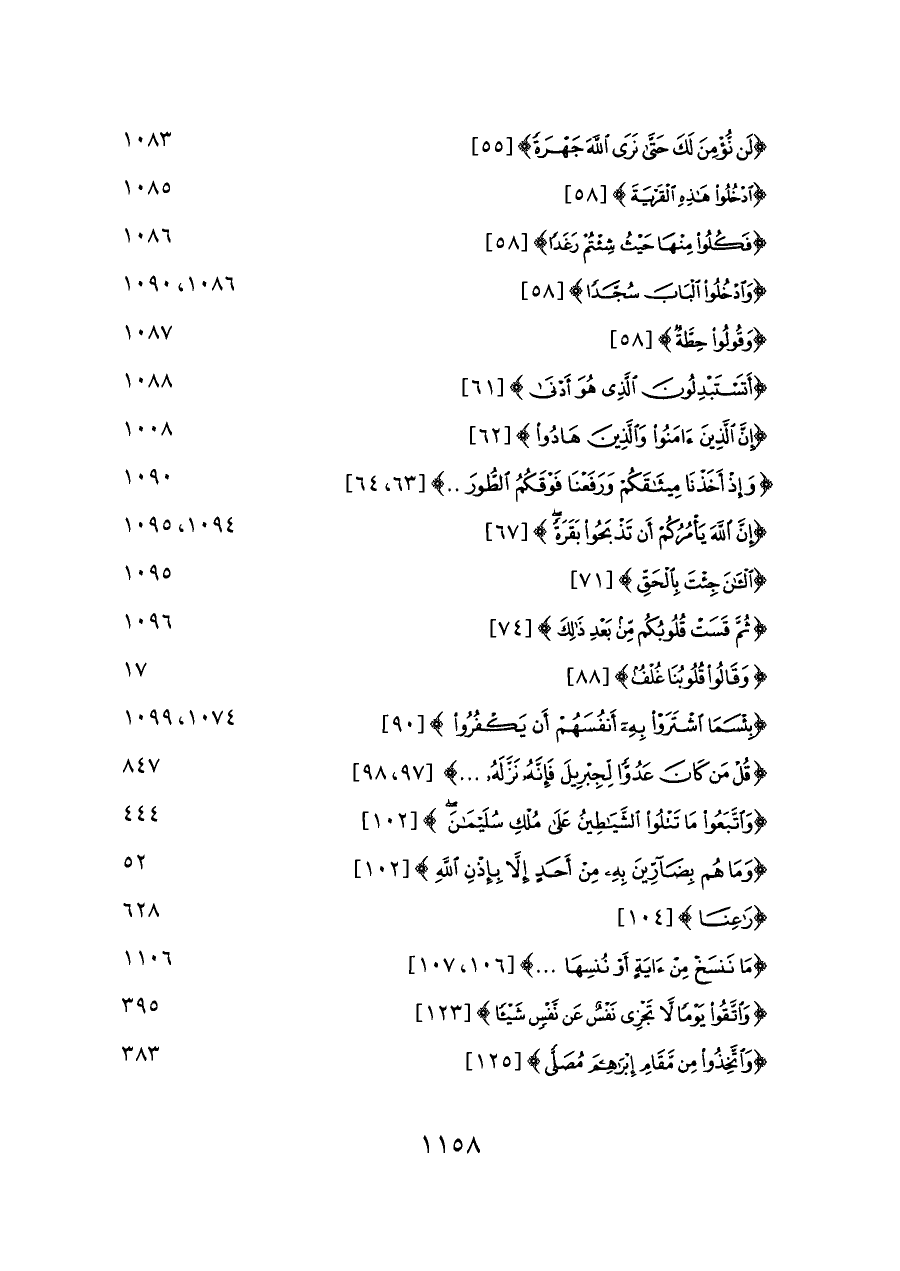 ﴿لَن نُّؤْمِنَ لَكَ حَتَّىٰ نَرَى ٱللَّهَ جَهْرَةً﴾ [٥٥] ١٠٨٣
﴿ٱدْخُلُوا۟ هَٰذِهِ ٱلْقَرْيَةَ ﴾ [٥٨] ١٠٨٥
﴿فَكُلُوا۟ مِنْهَا حَيْثُ شِئْتُمْ رَغَدًا﴾ [٥٨] ١٠٨٦
﴿وَٱدْخُلُوا۟ ٱلْبَابَ سُجَّدًا ﴾ [٥٨] ١٠٨٦، ١٠٩٠
﴿وَقُولُوا۟ حِطَّةٌ﴾ [٥٨] ١٠٨٧
﴿أَتَسْتَبْدِلُونَ ٱلَّذِى هُوَ أَدْنَىٰ ﴾ [٦١] ١٠٨٨
﴿إِنَّ ٱلَّذِينَ ءَامَنُوا۟ وَٱلَّذِينَ هَادُوا۟ ﴾ [٦٢] ١٠٠٨
﴿وَإِذْ أَخَذْنَا مِيثَٰقَكُمْ وَرَفَعْنَا فَوْقَكُمُ ٱلطُّورَ ..﴾ [٦٣، ٦٤] ١٠٩٠
﴿إِنَّ ٱللَّهَ يَأْمُرُكُمْ أَن تَذْبَحُوا۟ بَقَرَةًۖ ﴾ [٦٧] ١٠٩٤، ١٠٩٥
﴿ٱلْـَٰٔنَ جِئْتَ بِٱلْحَقِّ ﴾ [٧١] ١٠٩٥
﴿ثُمَّ قَسَتْ قُلُوبُكُم مِّنۢ بَعْدِ ذَٰلِكَ ﴾ [٧٤] ١٠٩٦
﴿وَقَالُوا۟ قُلُوبُنَا غُلْفٌۢ﴾ [٨٨] ١٧
﴿بِئْسَمَا ٱشْتَرَوْا۟ بِهِۦٓ أَنفُسَهُمْ أَن يَكْفُرُوا۟ ﴾ [٩٠] ١٠٧٤، ١٠٩٩
﴿قُلْ مَن كَانَ عَدُوًّا لِّجِبْرِيلَ فَإِنَّهُۥ نَزَّلَهُۥ ...﴾ [٩٧، ٩٨] ٨٤٧
﴿وَٱتَّبَعُوا۟ مَا تَتْلُوا۟ ٱلشَّيَٰطِينُ عَلَىٰ مُلْكِ سُلَيْمَٰنَۖ ﴾ [١٠٢] ٤٤٤
﴿وَمَا هُم بِضَآرِّينَ بِهِۦ مِنْ أَحَدٍ إِلَّا بِإِذْنِ ٱللَّهِ ﴾ [١٠٢] ٥٢
﴿رَٰعِنَا ﴾ [١٠٤] ٦٢٨
﴿مَا نَنسَخْ مِنْ ءَايَةٍ أَوْ نُنسِهَا ...﴾ [١٠٦، ١٠٧] ١١٠٦
﴿وَٱتَّقُوا۟ يَوْمًا لَّا تَجْزِى نَفْسٌ عَن نَّفْسٍ شَيْـًٔا ﴾ [١٢٣] ٣٩٥
﴿وَٱتَّخِذُوا۟ مِن مَّقَامِ إِبْرَٰهِـۧمَ مُصَلًّى ﴾ [١٢٥] ٣٨٣
١١٥٨